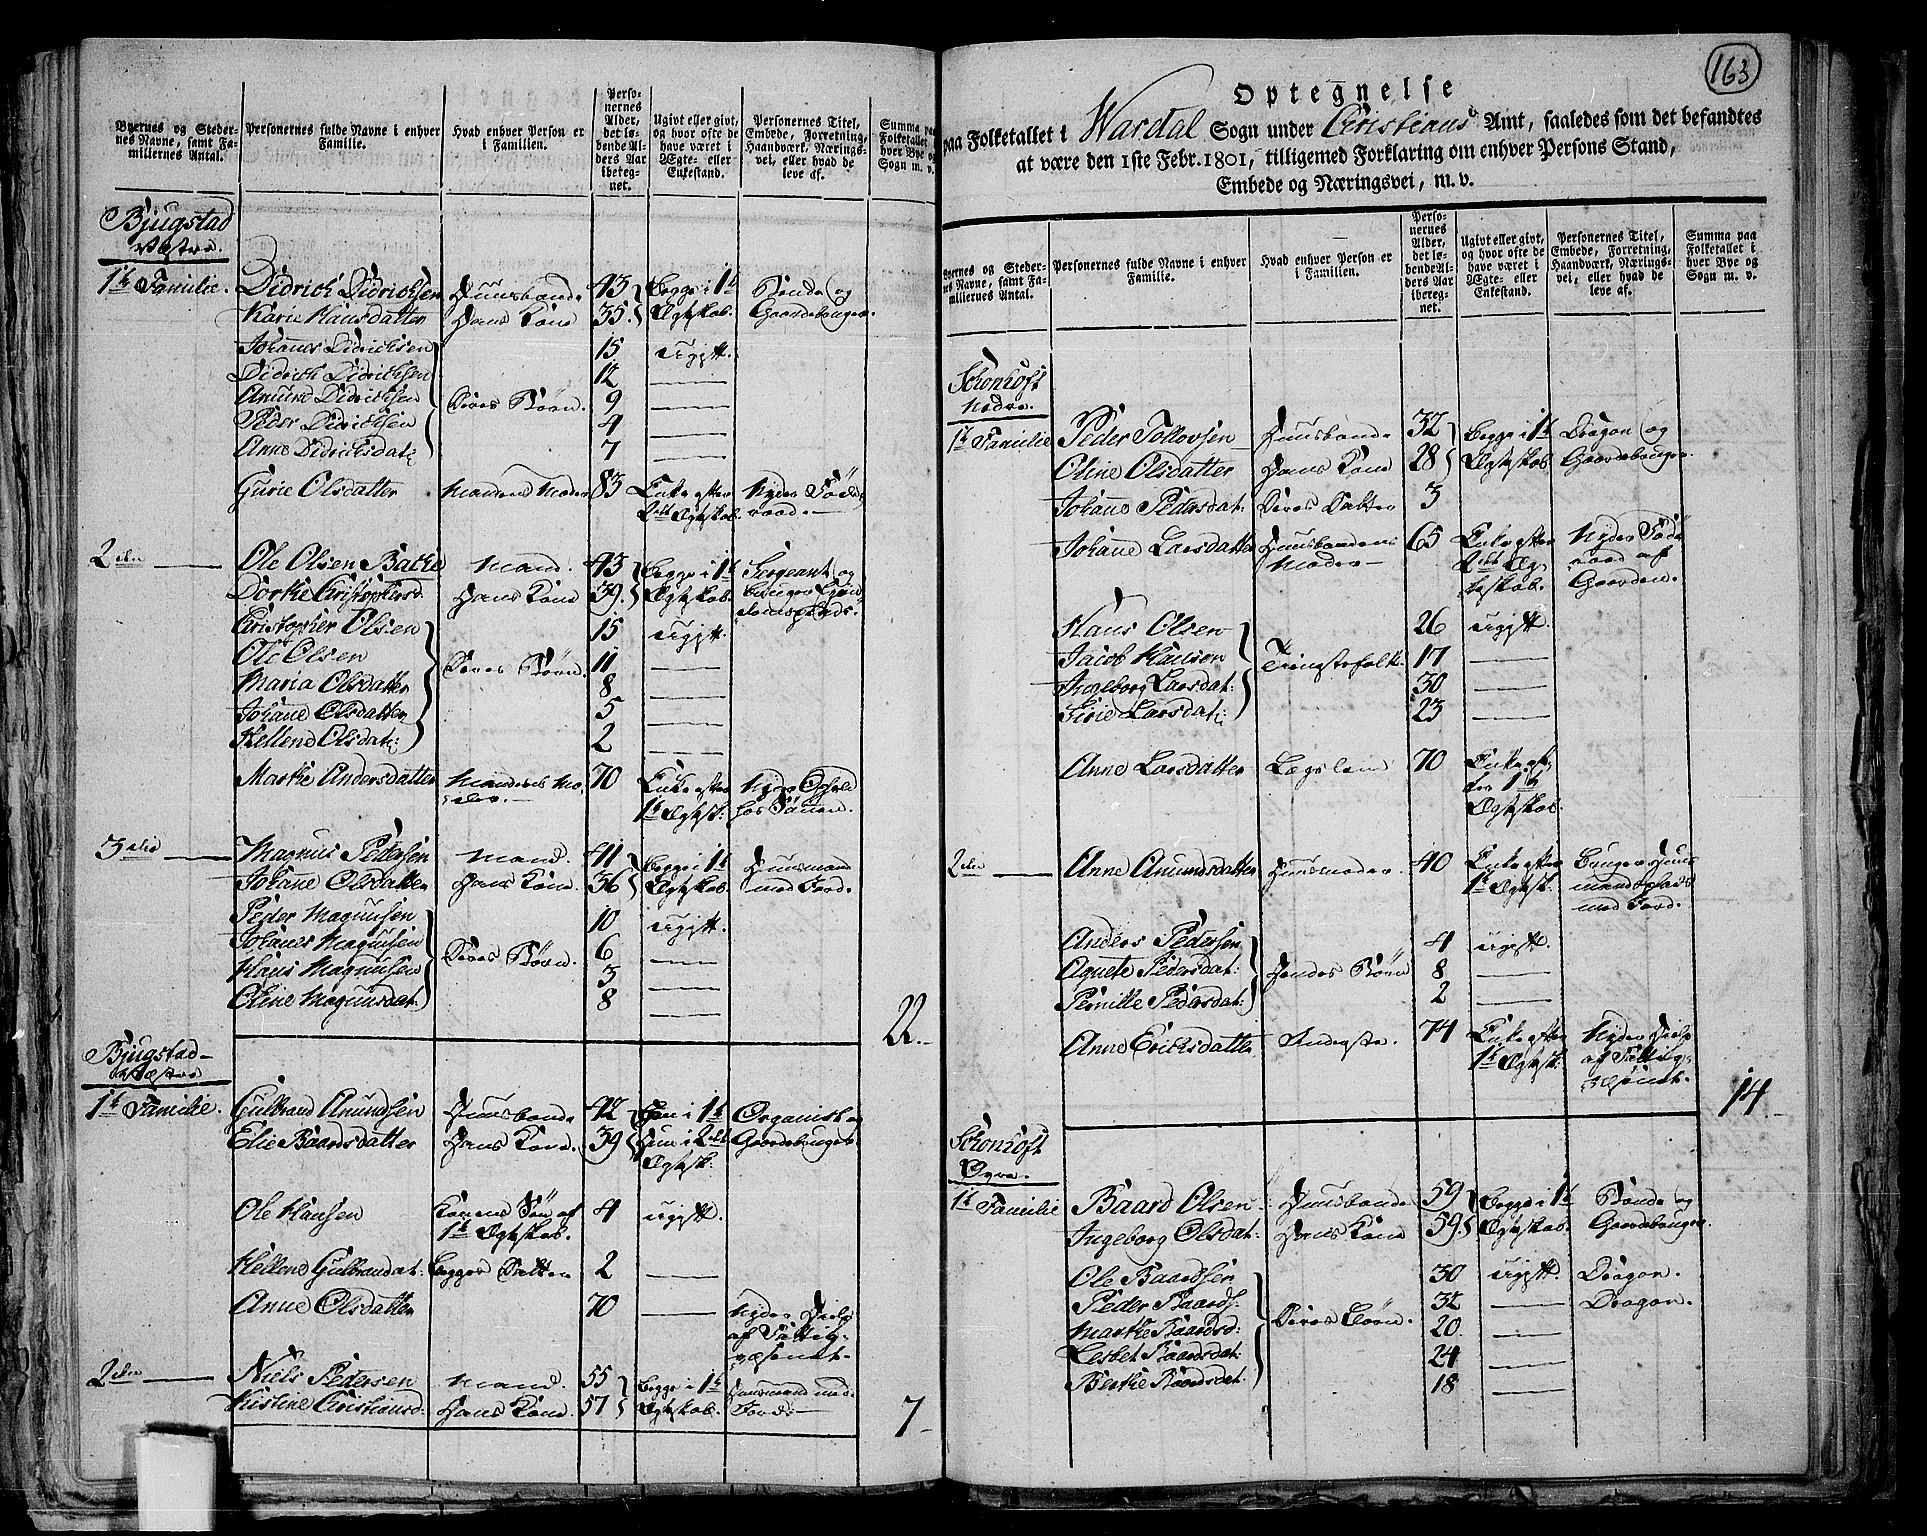 Byernes og Stedernes Navne, samt Familiernes Antal.
Personernes fulde Navne i enhver Familie.
Hvad enhver Person er i Familien.
Personernes Alder, det løbende Alders Aar iberegnet.
Ugivt eller givt, og hvor ofte de have været i Ægte- eller Enkestand.
Personernes Titel, Embede, Forretning, Haandværk, Næringsvei, eller hvad de leve af.
Summa paa Folketallet i hver Bye og Sogn m. v.
Bjugstad
Væstre.
1te Familie. Didrich Didrichsen Huusbonde 43 Begge i 1te Bonde og
Karie Hansdatter Hans Kone 35 Ægtskab. Gaardebruger.
Johanes Didrichsen 15 ugift.
Didrich Didrichsen 12
Amund Didrichsen Deres Børn. 9
Peder Didrichsen 4
Anne Didrichsdat: 7
Gurie Olsdatter Mandens Moder 83 Enke efter Nyder Føde
2det Ægtskab. raad.
2den Ole Olsen Bakke Mand. 43 Begge i 1te Sergeant og
Dorthe Christophersd. Hans Kone 39. Ægtskab.
Christopher Olsen 15 ugift.
Ole Olsen 11
Maria Olsdatter Deres Børn. 8
Johane Olsdatter 5
Hellene Olsdat: 2
Marthe Andersdatter Mandens Mo- 70 Enke efter Nyder Ophold
der. 1te Ægtsk: hos Sønnen.
3die Magnus Pedersen Mand. 41 Begge i 1te Huusmand
Johane Olsdatter Hans Kone. 36 Ægtskab. med Jord.
Peder Magnusen 10 ugift.
Johanes Magnusen Deres Børn. 6
Hans Magnusen 3
Oline Magnusdat: 8
22.
Bjugstad
Væstre
1te Familie. Gulbrand Amundsen Huusbonde 42 Han i 1te Organist og
Elie Baardsdatter Hans Kone. 39 Hun i 2det Gaardebruger.
Ægtsk:
Ole Hansen Konens Søn af 4 ugift.
1te Ægtskab.
Hellene Gulbrandat: Begges Datter 2
Anne Olsdatter 70 Nyder Hielp
af Fattig-
væsenet.
2den Niels Pedersen Mand. 55 Begge i 1te Huusmand med
Kistine Christiansd: Hans Kone. 57 Ægtskab. Jord.
7
163
Optegnelse
paa Folketallet i Wardal Sogn under Christians Amt, saaledes som det befandtes
at være den 1ste Febr. 1801, tilligemed Forklaring om enhver Persons Stand,
Embede og Næringsvei, m. v.
Byernes og Stedernes Navne, samt Familiernes Antal.
Personernes fulde Navne i enhver Familie.
Hvad enhver Person er i Familien.
Personernes Alder, det løbende Alders Aar iberegnet.
Ugivt eller givt, og hvor ofte de have været i Ægte- eller Enkestand.
Personernes Titel, Embede, Forretning, Haandværk, Næringsvei, eller hvad de leve af.
Summa paa Folketallet i hver Bye og Sogn m. v.
Schonhoft
Nedre.
1te Familie Peder Tollovsen Huusbonde 32 Begge i 1te Dragon og
Oline Olsdatter Hans Kone 28 Ægtskab Gaardebruger.
Johane Pedersdat: Deres Datter 3
Johane Larsdatter Huusbondens 65 Enke efter Nyder Føde
Moder 2det Æg- raad af
tskab. Gaarden.
Hans Olsen 26 ugift
Jacob Hansen Tienestefolk. 17
Ingeborg Larsdat: 30
Sirie Larsdat: 23
Anne Larsdatter Lægslem 70 Enke ef-
ter 1te
Ægtskab.
2den Anne Amundsdatter Huusmoder 40 Enke efter Bruger Huus
1te Ægtsk. mandsplads
med Jord.
Anders Pedersen 4 ugift.
Agnete Pedersdat: Hendes Børn 8
Pernille Pedersdat: 2
Anne Erichsdatter Inderste. 74 Enke efter Nyder Hielp
1te Ægtsk: af Fattig-
væsenet.
14
Schonhoft
Øvre.
1te Familie Baard Olsen Huusbonde 59 Begge i 1te Bonde og
Ingeborg Olsdat: Hans Kone 59. Ægtskab. Gaardebruger.
Ole Baardsen 30 ugift. Dragon.
Peder Baards. 32 Dragon.
Marthe Baardsd: Deres Børn. 20.
Lesbet Baardsdat: 24
Berthe Baardsdat: 18